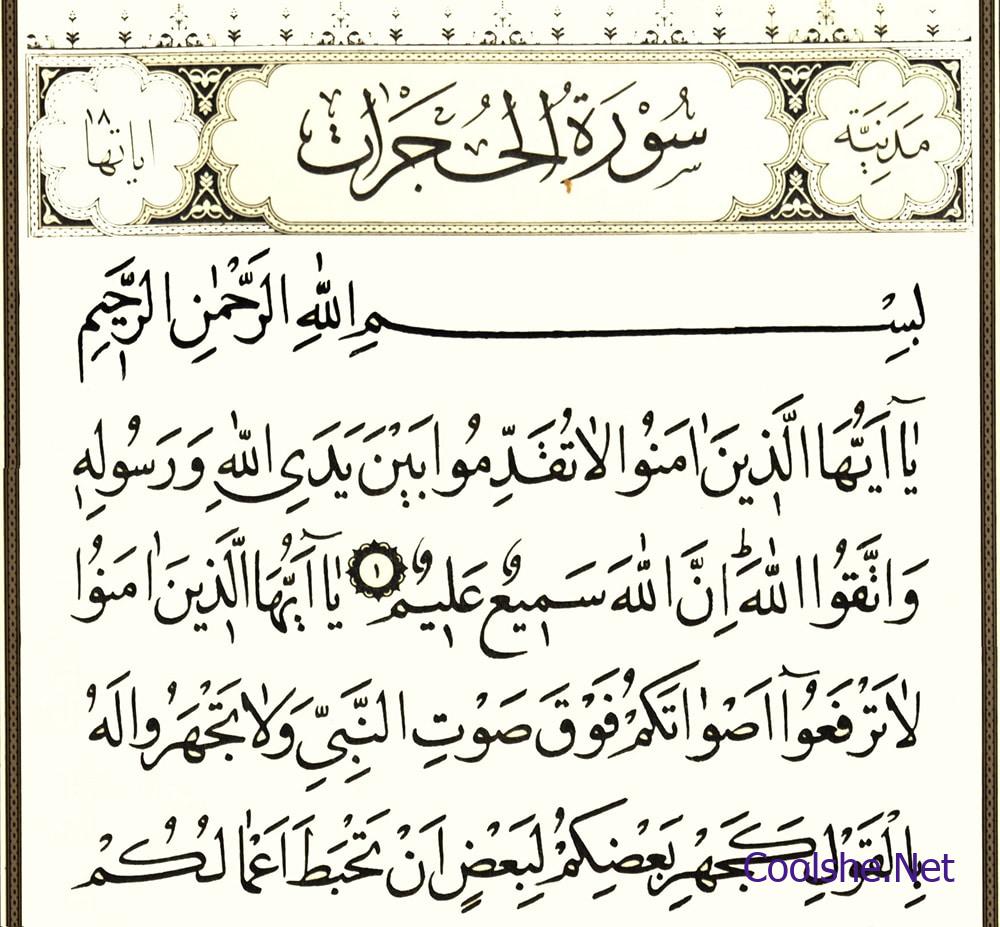 مَدَنِيَّة
سُوْرَةُ الْحُجَرَاتِ
اياتها ١٨
بِسْمِ اللّٰهِ الرَّحْمٰنِ الرَّح۪يمِ
يَٓا اَيُّهَا الَّذ۪ينَ اٰمَنُوا لَا تُقَدِّمُوا بَيْنَ يَدَيِ اللّٰهِ وَرَسُولِه۪
وَاتَّقُوا اللّٰهَۜ اِنَّ اللّٰهَ سَم۪يعٌ عَل۪يمٌ ١ يَٓا اَيُّهَا الَّذ۪ينَ اٰمَنُوا
لَا تَرْفَعُٓوا اَصْوَاتَكُمْ فَوْقَ صَوْتِ النَّبِيِّ وَلَا تَجْهَرُوا لَهُ
بِالْقَوْلِ كَجَهْرِ بَعْضِكُمْ لِبَعْضٍ اَنْ تَحْبَطَ اَعْمَالُكُمْ
Coolshe.Net